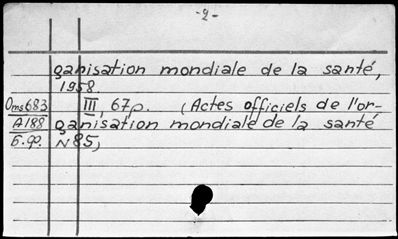 -2-
ganisation mondiale de la santé,
1958.
Oms683 III, 67p. (Actes officiels de l'or-
A188 ganisation mondiale de la santé
б.ф. N85)